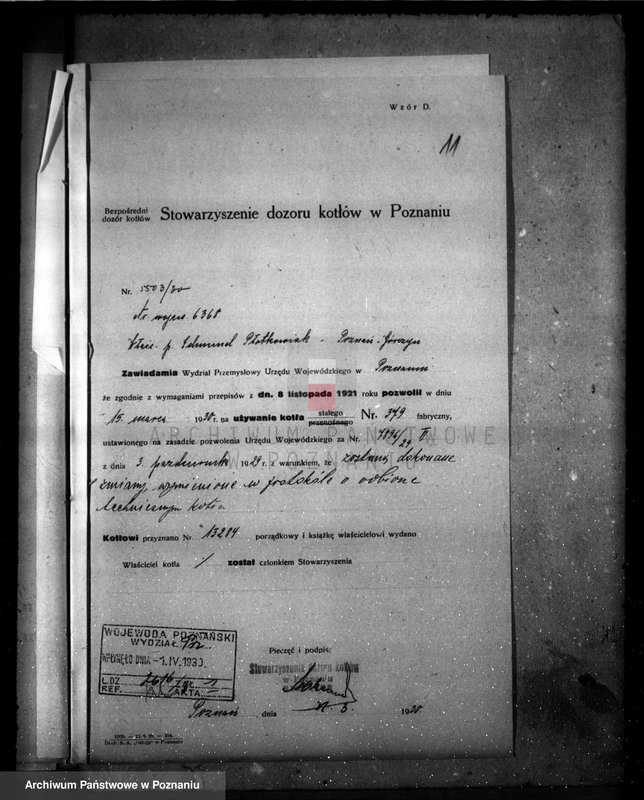 Wzór D.
11
Bezpośredni dozór kotłów Stowarzyszenie dozoru kotłów w Poznaniu
Nr. 5503/30
Nr wojew. 6368
Właśc. p. Edmund Płotkowiak - Poznań-Górczyn
Zawiadamia Wydział Przemysłowy Urzędu Wojewódzkiego w Poznaniu
że zgodnie z wymaganiami przepisów z dn. 8 listopada 1921 roku pozwolił w dniu
15. marca 1930 r. na używanie kotła stałego przenośnego Nr. 349 fabryczny,
ustawionego na zasadzie pozwolenia Urzędu Wojewódzkiego za Nr. 7894/29 V
z dnia 3. października 1929 r. z warunkiem, że zostaną dokonane
zmiany, wymienione w protokóle o odbiorze
technicznym kotła
Kotłowi przyznano Nr. 13284 porządkowy i książkę właścicielowi wydano
Właściciel kotła / został członkiem Stowarzyszenia
ARCHIWUM PAŃSTWOWE
W POZNANIU
WOJEWODA POZNAŃSKI
WYDZIAŁ
WPŁYNĘŁO DNIA -1. IV. 1930.
L.DZ.
REF. AKTA
Pieczęć i podpis:
Stowarzyszenie dozoru kotłów
w Poznaniu
Poznań dnia 21. 3. 1930
Archiwum Państwowe w Poznaniu